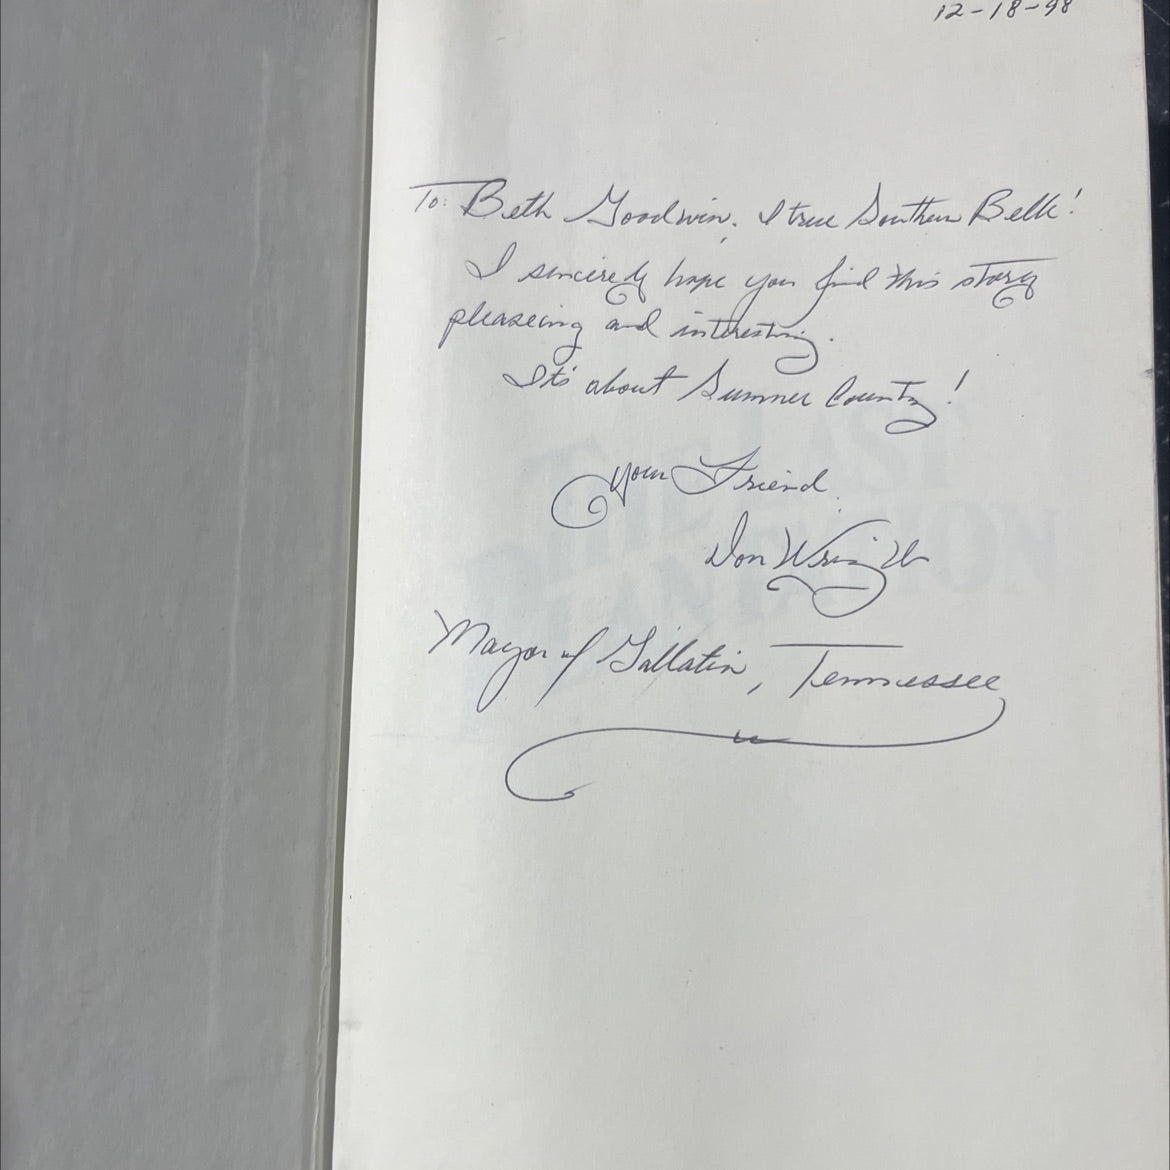 12-18-98
To: Beth Goodwin. A true Southern Belle!
I sincerely hope you find this story
pleaseing and interesting.
It's about Sumner County!
Your Friend,
Don Wright
Mayor of Gallatin, Tennessee
THE LAST
PLANTATION